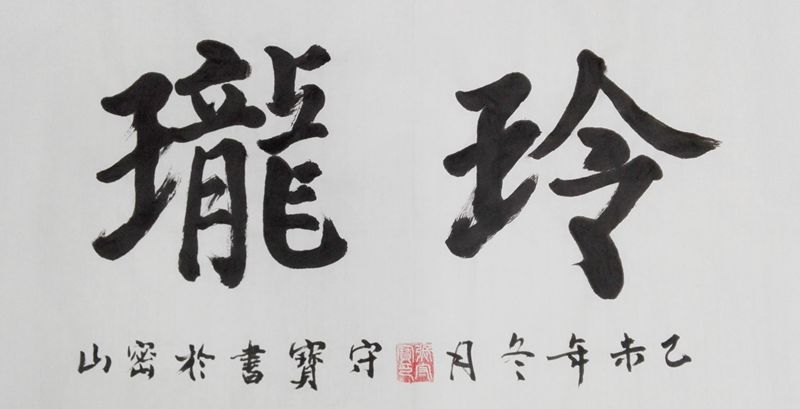 玲瓏
乙未年冬月守寶書於密山